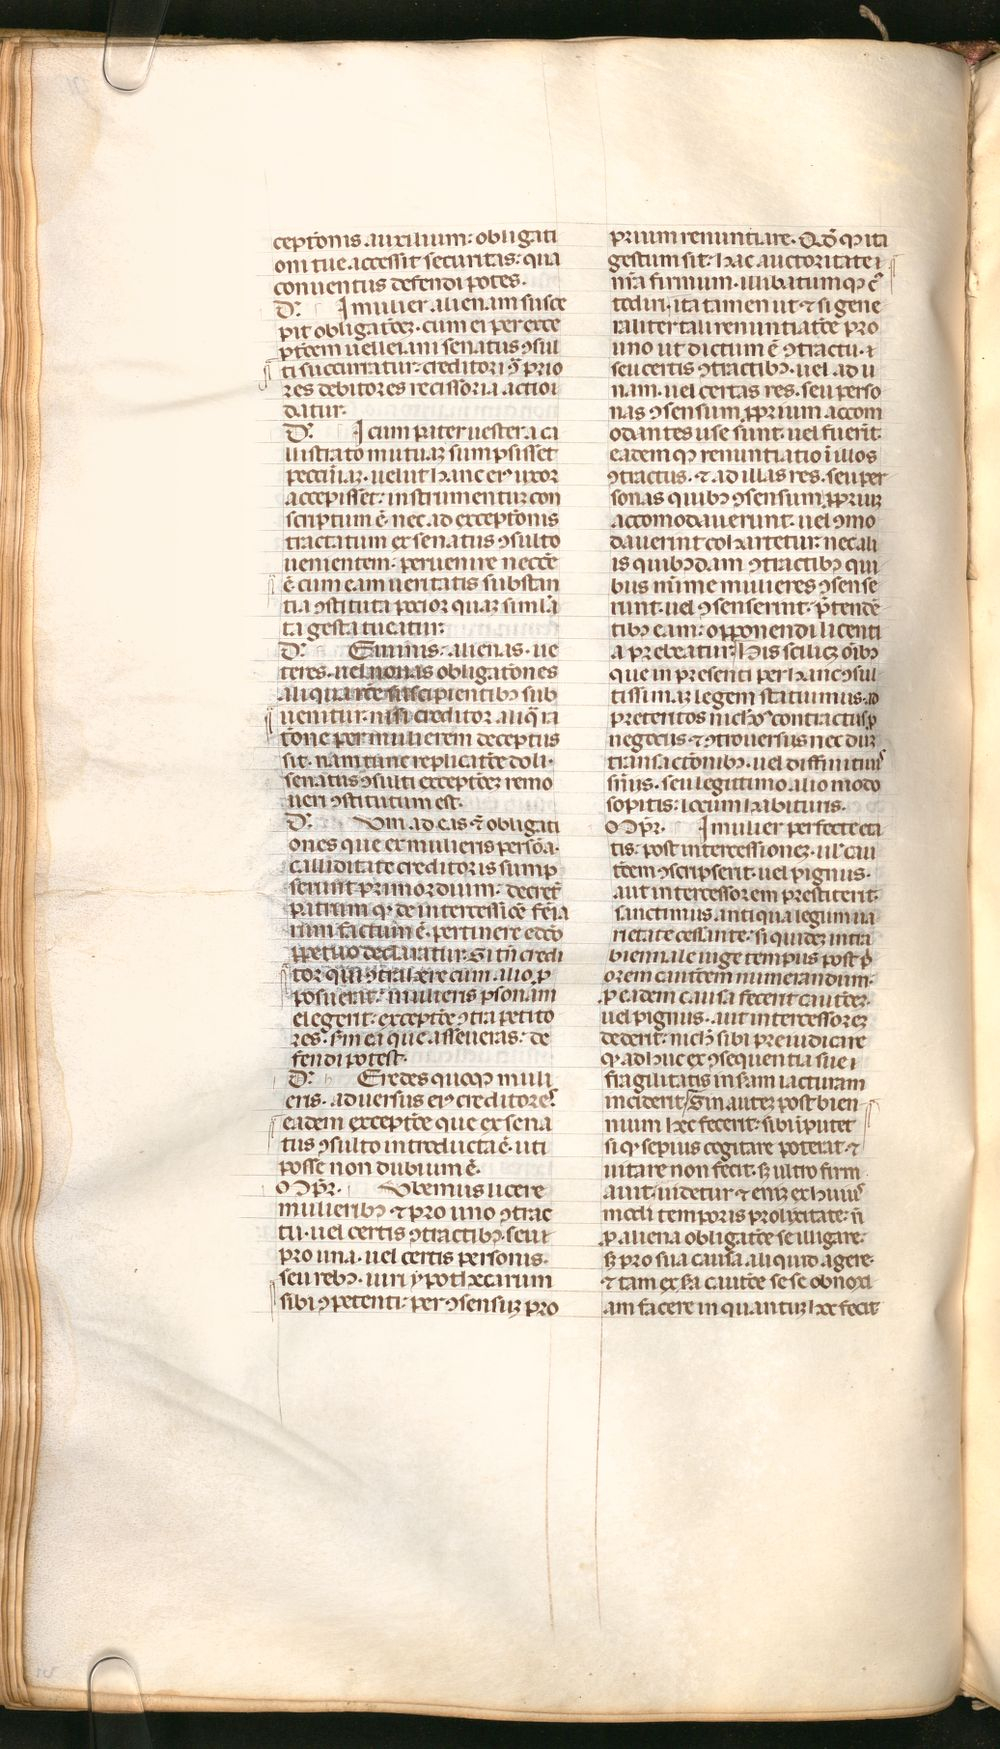 ceptōnis auxilium: obligati
oni tue accessit securitas: qua
conuentus defendi potes.
D'. I mulier alienam susce
pit obligatōez. cum ei per exce
ptōem uelleiani senatus ꝯsul
ti succurratur: creditori ꝗ̄ prio
res debitores recissoria actio
datur.
D'. I cum pater uester a ca
llistrato mutuaꝫ sumpsisset
pecūiaꝫ. uelut hanc eiꝰ uxor
accepisset: instrumentuꝫ con
scriptum ē. nec ad exceptōnis
tractatum ex senatus ꝯsulto
uenientem: peruenire necēe
ē cum eam ueritatis substan
tia ꝯstituta pocior quaꝫ simila
ta gesta tucatur.
D'. Eminis. alienas. ue
teres. uel nouas obligatōnes
aliquantēe suscipientibꝫ sub
uenitur. nisi creditor aliq̄ ra
tōne per mulierem deceptus
sit. nam tunc replicatōe doli.
senatus ꝯsulti exceptōeꝫ remo
ueri ꝯstitutum est.
D'. Vm ad eas ꝛ̄ obligati
ones que ex mulieris persōa.
calliditate creditoris sump
serunt primordium: decret̄
patrum qꝫ de intercessiōe fēia
rum factum ē. pertinere edco
ꝑpetuo declaratur. Si tn̄ credi
tor qui ꝯtrahere cum alio ꝓ
posuerit: mulieris ꝑsonam
elegerit: exceptōe ꝯtra petito
res. sm̄ ea que asseueras: de
fendi potest.
D'. Eredes quoqꝫ muli
eris. aduersus eiꝰ creditores.
eadem exceptōe que ex sena
tus ꝯsulto introducta ē. uti
posse non dubium ē.
Ōpr̄. Vbemus licere
mulieribꝫ. ⁊ pro uno ꝯtrac
tu. uel certis ꝯtractibꝫ. seu
pro una. uel certis personis.
seu rebꝫ. iuri ypothecarum
sibi ꝯpetenti: per ꝯsensuꝫ pro
prium renuntiare. Q̄d̄qꝫ ita
gestum sit: hac auctoritate
nr̄a firmum. illibatumqꝫ ē
tediri. ita tamen ut ⁊ si gene
raliter tali renuntiatōe pro
uno ut dictum ē ꝯtractu. ⁊
seu certis ꝯtractibꝫ. uel ad u
nam. uel certas res. seu perso
nas ꝯsensum ꝓprium accom
odantes use sunt. uel fuerit.
eadem qꝫ renuntiatio ī illos
ꝯtractus. ⁊ ad illas res. seu per
sonas quibꝫ ꝯsensum ꝓpriuꝫ
accomodauerunt. uel ꝯmo
dauerint cohartetur: nec ali
is quibꝫdam ꝯtractibꝫ qui
bus minime mulieres ꝯsense
runt. uel ꝯsenserint. p̄tendē
tibꝫ eam: opponendi licenti
a prebeatur. His scilicꝫ oībꝫ
que in presenti per hanc ꝯsul
tissimaꝫ legem statuimus. ad
preteritos nichoꝰ contractus ꝓ
negocus. ⁊ ꝯtrouersus nec dum
transactōnibꝫ. uel diffinitiuis
sn̄iis. seu legittimo alio modo
sopitis: locum habituris.
Ōpr̄. I mulier perfecte eta
tis: post intercessioneꝫ. ul' cau
tōem ꝯscripserit. uel pignus.
aut intercessorem prestiterit.
sanctimus. antiqua legum ua
rietate cessante. si quideꝫ intra
biennale iuge tempus post p
orem cautōem numerandum.
ꝓ eadem causa fecerit cautōeꝫ.
uel pignus. aut intercessoreꝫ
dederit: nichꝫ sibi preiudicare
qꝫ adhuc ex ꝯsequentia sue
fragilitatis in s̄am iacturam
inciderit. Sin auteꝫ post bien
nium hec fecerit: sibi īputet
si qꝫ sepius cogitare poterat. ⁊
uitare non fecit. sꝫ ultro firm
auit. uidetur ⁊ enī ex huius
modi temporis prolixitate: n̄
ꝓ aliena obligatōe se illigare:
sꝫ pro sua causa aliquid agere.
⁊ tam ex sa cautōe se se obnoxi
am facere in quantuꝫ hec fecit